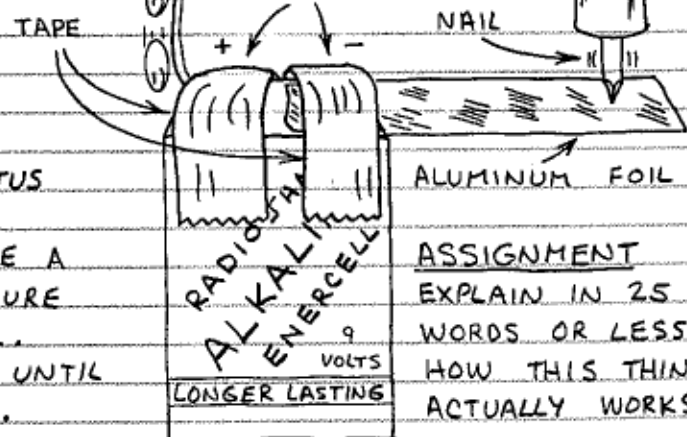 TAPE
+ -
NAIL
ALUMINUM FOIL
TUS
E A
URE
..
UNTIL
.
RADIO SHA
ALKALI
ENERCELL
9
VOLTS
LONGER LASTING
ASSIGNMENT
EXPLAIN IN 25
WORDS OR LESS
HOW THIS THIN
ACTUALLY WORKS